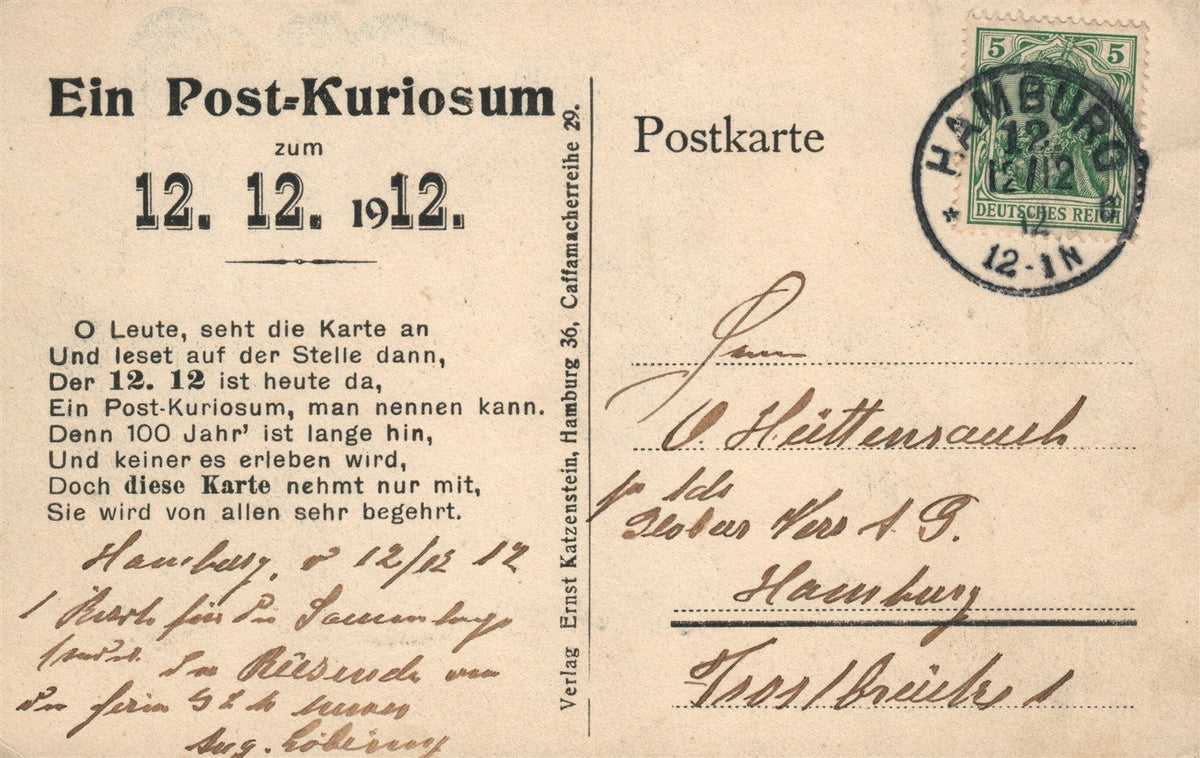 Ein Post-Kuriosum
zum
12. 12. 1912.
O Leute, seht die Karte an
Und leset auf der Stelle dann,
Der 12. 12 ist heute da,
Ein Post-Kuriosum, man nennen kann.
Denn 100 Jahr' ist lange hin,
Und keiner es erleben wird,
Doch diese Karte nehmt nur mit,
Sie wird von allen sehr begehrt.
Hamburg, d 12/12 12
1 Karte für die
die Reisende von
der firma
Aug.
Verlag Ernst Katzenstein, Hamburg 36, Caffamacherreihe 29.
Postkarte
5 5
DEUTSCHES REICH
HAMBURG
12.
12/12
12
12-1N
*
Herrn
O. Hüttenrauch
Globus Vers A. G.
Hamburg
Trostbrücke 1